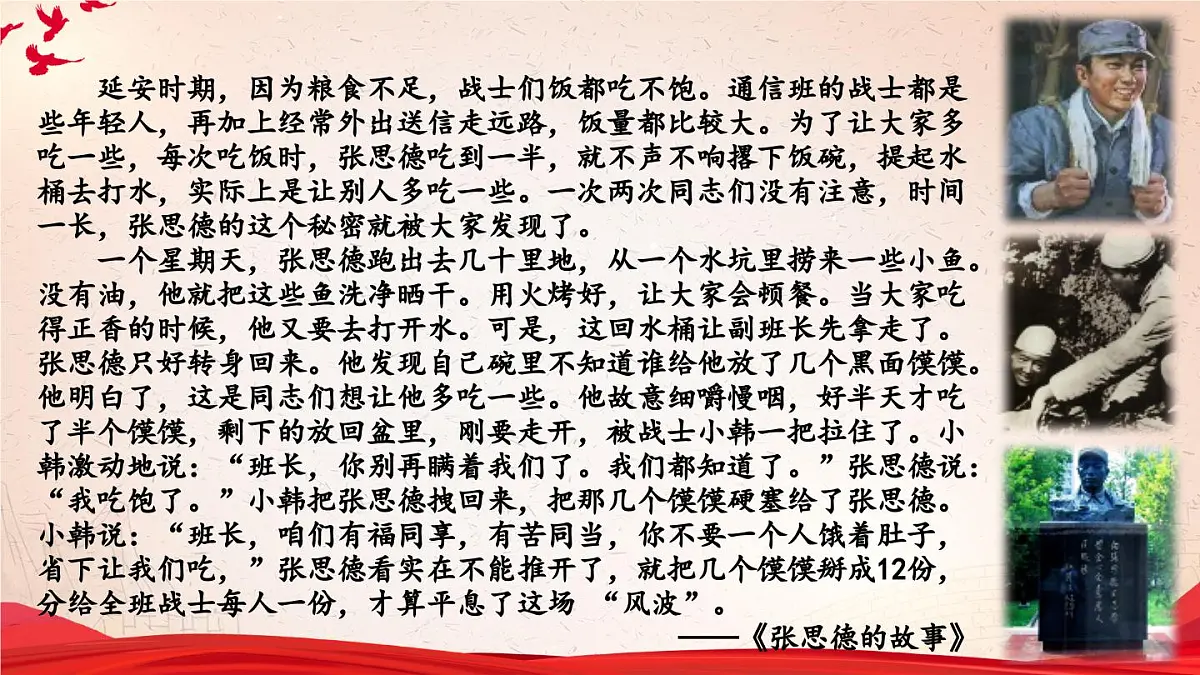 延安时期，因为粮食不足，战士们饭都吃不饱。通信班的战士都是
些年轻人，再加上经常外出送信走远路，饭量都比较大。为了让大家多
吃一些，每次吃饭时，张思德吃到一半，就不声不响撂下饭碗，提起水
桶去打水，实际上是让别人多吃一些。一次两次同志们没有注意，时间
一长，张思德的这个秘密就被大家发现了。
一个星期天，张思德跑出去几十里地，从一个水坑里捞来一些小鱼。
没有油，他就把这些鱼洗净晒干。用火烤好，让大家会顿餐。当大家吃
得正香的时候，他又要去打开水。可是，这回水桶让副班长先拿走了。
张思德只好转身回来。他发现自己碗里不知道谁给他放了几个黑面馍馍。
他明白了，这是同志们想让他多吃一些。他故意细嚼慢咽，好半天才吃
了半个馍馍，剩下的放回盆里，刚要走开，被战士小韩一把拉住了。小
韩激动地说：“班长，你别再瞒着我们了。我们都知道了。”张思德说：
“我吃饱了。”小韩把张思德拽回来，把那几个馍馍硬塞给了张思德。
小韩说：“班长，咱们有福同享，有苦同当，你不要一个人饿着肚子，
省下让我们吃，”张思德看实在不能推开了，就把几个馍馍掰成12份，
分给全班战士每人一份，才算平息了这场 “风波”。
——《张思德的故事》